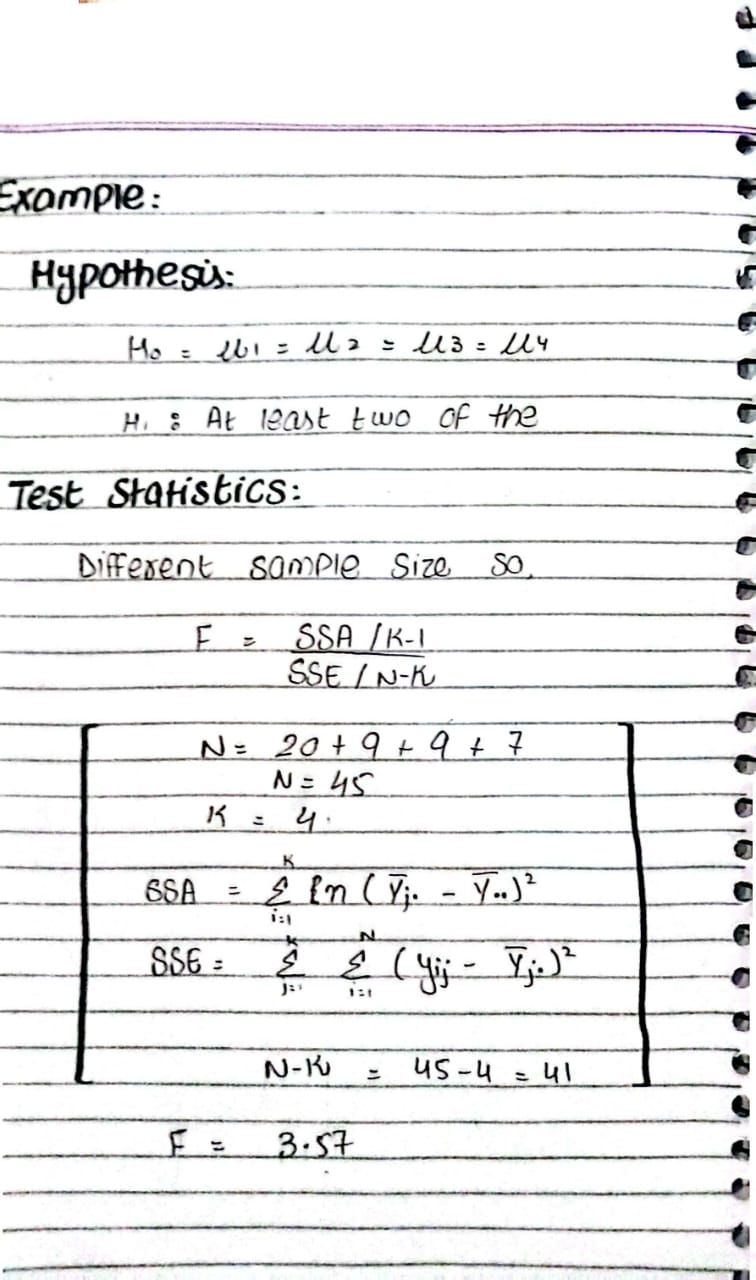 Example:
Hypothesis:
H₀ = μ1 = μ2 = μ3 = μ4
H₁ : At least two of the
Test Statistics:
Different sample size so,
F = SSA / K-1
SSE / N-K
N = 20 + 9 + 9 + 7
N = 45
K = 4.
K
SSA = Σ ln ( Ȳj. - Ȳ.. )²
i=1
K N
SSE = Σ Σ ( yij - Ȳj. )²
j=1 i=1
N-K = 45-4 = 41
F = 3.57